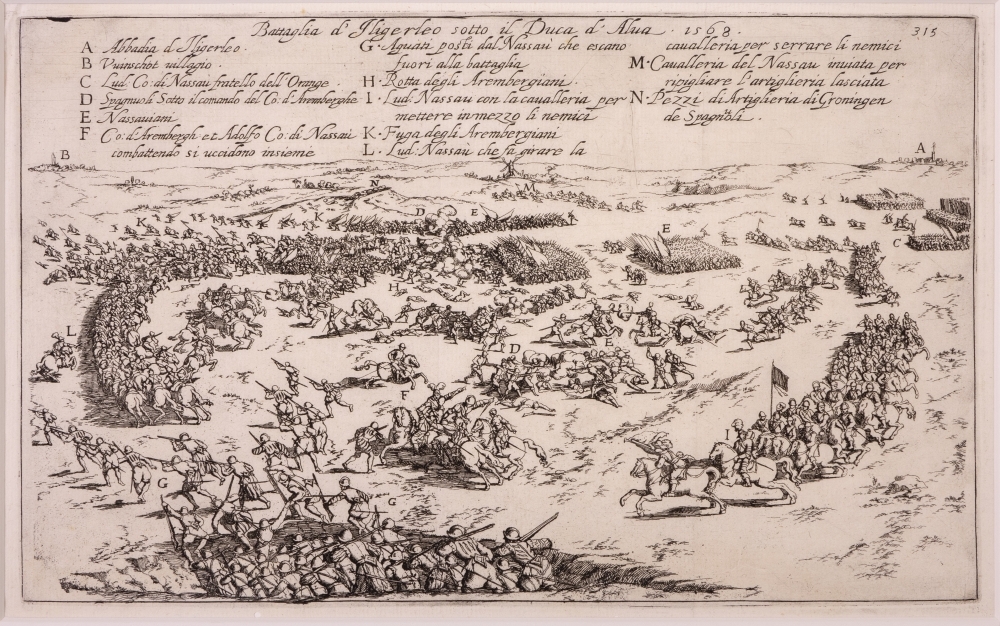 Battaglia d'Iligerleo sotto il Duca d'Alua. 1568.
315
A Abbadia d'Iligerleo.
B Vuinschot uillagio.
C Lud: Co: di Nassau fratello dell'Orange.
D Spagnuoli Sotto il comando del Co: d'Aremberghe
E Nassauiani
F Co: d'Arembergh et Adolfo Co: di Nassau
combattendo si uccidono insieme
G. Aguati posti dal Nassau che escano
fuori alla battaglia
H. Rotta degli Arembergiani.
I. Lud: Nassau con la caualleria per
mettere in mezzo li nemici
K. Fuga degli Arembergiani
L. Lud: Nassau che fa girare la
caualleria per serrare li nemici
M. Caualleria del Nassau inuiata per
ripigliare l'artiglieria lasciata
N. Pezzi di Artiglieria di Groningen
de Spagnuoli.
B
A
N
M
K
K
D
E
E
C
H
I
L
D
E
F
I
G
G